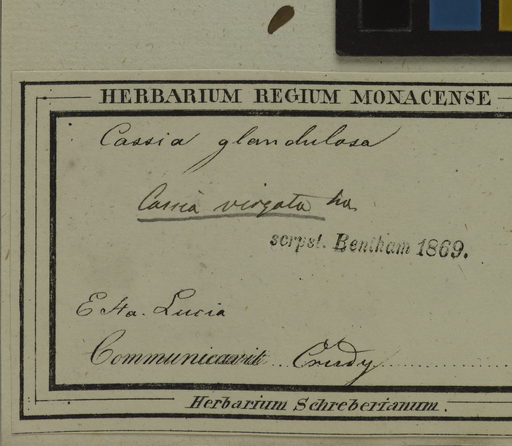 HERBARIUM REGIUM MONACENSE
Cassia glandulosa
Cassia virgata
scrpst. Bentham 1869.
E Sta. Lucia
Communicavit Crudy
Herbarium Schreberianum.